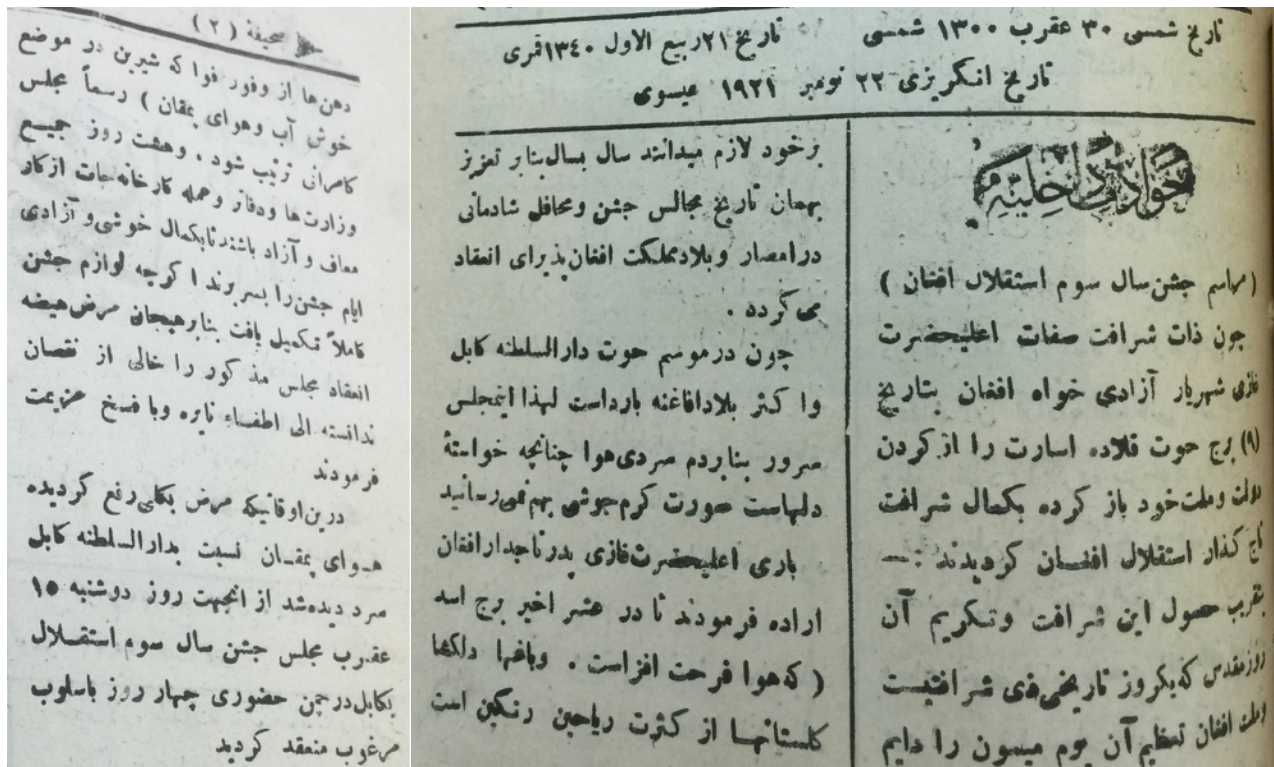 تاریخ شمسی ۳۰ عقرب ۱۳۰۰ شمسی تاریخ ۲۱ ربیع الاول ۱۳۴۰ قمری
تاریخ انگریزی ۲۲ نومبر ۱۹۲۱ عیسوی
حوادث داخلیه
(مراسم جشن سال سوم استقلال افغان)
چون ذات شرافت صفات اعلیحضرت
غازی شهریار آزادی خواه افغان بتاریخ
(۹) برج حوت قلاده اسارت را از گردن
دولت و ملت خود باز کرده بکمال شرافت
تاج گذار استقلال افغسان گردیدند :—
بتقریب حصول این شرافت و تکریم آن
روز مقدس که یکروز تاریخی ذی شرافتیست
وملت افغان تعظیم آن یوم میمون را دایم
برخود لازم میدانند سال بسال بنابر تعزیز
بهمان تاریخ مجالس جشن و محافل شادمانی
در امصار و بلاد مملکت افغان پذیرای انعقاد
می گردد .
چون در موسم حوت دار السلطنه کابل
وا کثر بلاد افاغنه بارد است لهذا اینمجلس
سرور بنابر دم سردی هوا چنانچه خواستهٔ
دلهاست صورت گرم جوشی بهم نمی رسانید
باری اعلیحضرت غازی پدر تاجدار افغان
اراده فرمودند تا در عشر اخیر برج اسد
( که هوا فرحت افزاست . وباغها دلکشا
گلستانها از کثرت ریاحین رنگین است
صحیفه (۲)
دهن ها از وفور فوا که شیرین در موضع
خوش آب وهوای پمقان ) رسماً مجلس
کامرانی ترتیب شود . وهشت روز جمیع
وزارت ها و دفاتر و عمله کارخانه جات از کار
معاف و آزاد باشند تا بکمال خوشی و آزادی
ایام جشن را بسر برند ا گرچه لوازم جشن
کاملاً تکمیل یافت بنابر هیجان مرض هیضه
انعقاد مجلس مذ کور را خالی از نقصان
ندانسته الی اطفاء نایره وبا فسخ عزیمت
فرمودند
درین اوقاتیکه مرض بکلی رفع گردیده
هوای پمقان نسبت بدار السلطنه کابل
سرد دیده شد از انجهت روز دوشنبه ۱۵
عقرب مجلس جشن سال سوم استقلال
بکابل در چمن حضوری چهار روز باسلوب
مرغوب منعقد گردید